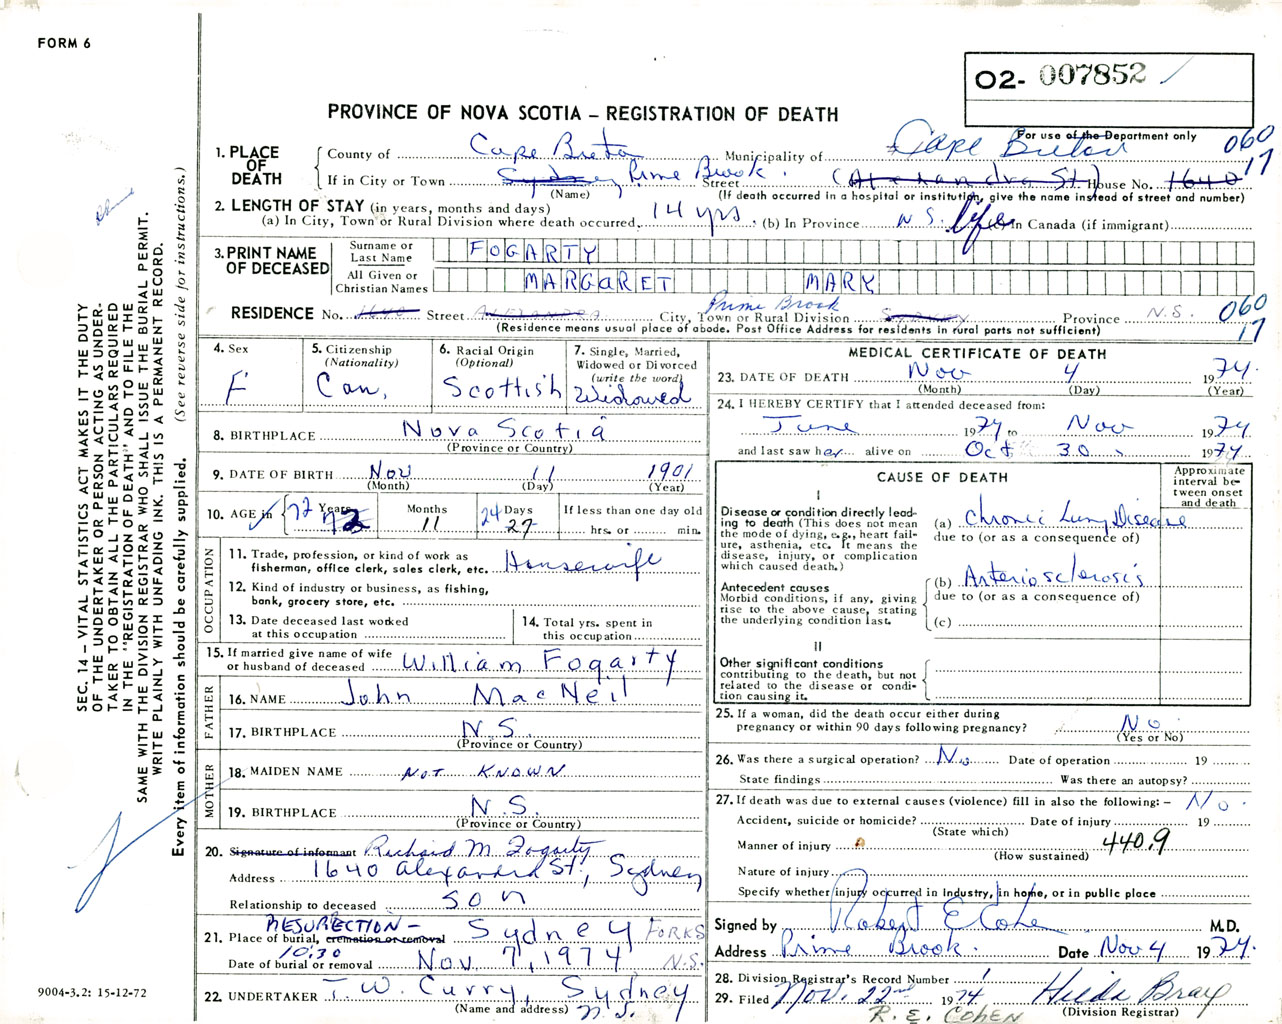 FORM 6
02- 007852
PROVINCE OF NOVA SCOTIA – REGISTRATION OF DEATH
For use of the Department only
1. PLACE OF DEATH
County of Cape Breton Municipality of Cape Breton 060
If in City or Town Sydney Prime Brook. Street (Alexandra St) House No. 1640 17
(Name) (If death occurred in a hospital or institution, give the name instead of street and number)
2. LENGTH OF STAY (in years, months and days)
(a) In City, Town or Rural Division where death occurred, 14 yrs (b) In Province N.S. life (c) In Canada (if immigrant)
3. PRINT NAME OF DECEASED
Surname or Last Name FOGARTY
All Given or Christian Names MARGARET MARY
RESIDENCE No. 1640 Street ALEXANDRA City, Town or Rural Division Sydney Prime Brook Province N.S. 060
17
(Residence means usual place of abode. Post Office Address for residents in rural parts not sufficient)
4. Sex
F
5. Citizenship
(Nationality)
Can.
6. Racial Origin
(Optional)
Scottish
7. Single, Married, Widowed or Divorced
(write the word)
Widowed
8. BIRTHPLACE Nova Scotia
(Province or Country)
9. DATE OF BIRTH Nov 11 1901
(Month) (Day) (Year)
10. AGE in 72 Years 72 Months 11 24 Days 27 If less than one day old
hrs. or min.
OCCUPATION
11. Trade, profession, or kind of work as fisherman, office clerk, sales clerk, etc. Housewife
12. Kind of industry or business, as fishing, bank, grocery store, etc.
13. Date deceased last worked at this occupation
14. Total yrs. spent in this occupation
15. If married give name of wife or husband of deceased William Fogarty
FATHER
16. NAME John MacNeil
17. BIRTHPLACE N.S.
(Province or Country)
MOTHER
18. MAIDEN NAME NOT KNOWN
19. BIRTHPLACE N.S.
(Province or Country)
20. Signature of informant Richard M Fogarty
Address 1640 Alexandra St., Sydney
Relationship to deceased SON
RESURECTION –
21. Place of burial, cremation or removal Sydney FORKS
10:30
Date of burial or removal Nov 7, 1974 N.S.
22. UNDERTAKER T.W. Curry, Sydney
(Name and address) N.S.
MEDICAL CERTIFICATE OF DEATH
23. DATE OF DEATH Nov 4 1974
(Month) (Day) (Year)
24. I HEREBY CERTIFY that I attended deceased from:
June 1974 to Nov 1974
and last saw her alive on Oct 30 1974
CAUSE OF DEATH
Approximate interval between onset and death
I
Disease or condition directly leading to death (This does not mean the mode of dying, e.g., heart failure, asthenia, etc. It means the disease, injury, or complication which caused death.)
(a) Chronic Lung Disease
due to (or as a consequence of)
Antecedent causes
Morbid conditions, if any, giving rise to the above cause, stating the underlying condition last.
(b) Arteriosclerosis
due to (or as a consequence of)
(c)
II
Other significant conditions contributing to the death, but not related to the disease or condition causing it.
25. If a woman, did the death occur either during pregnancy or within 90 days following pregnancy? No
(Yes or No)
26. Was there a surgical operation? No Date of operation 19
State findings Was there an autopsy?
27. If death was due to external causes (violence) fill in also the following: – No
Accident, suicide or homicide? Date of injury 19
(State which)
Manner of injury 440.9
(How sustained)
Nature of injury
Specify whether injury occurred in Industry, in home, or in public place
Signed by Robert E Cohen M.D.
Address Prime Brook. Date Nov 4 1974.
28. Division Registrar's Record Number 1
29. Filed Nov. 22nd 1974 Hilda Bray
(Division Registrar)
R. E. COHEN
SEC. 14 – VITAL STATISTICS ACT MAKES IT THE DUTY
OF THE UNDERTAKER OR PERSON ACTING AS UNDER-
TAKER TO OBTAIN ALL THE PARTICULARS REQUIRED
IN THE "REGISTRATION OF DEATH" AND TO FILE THE
SAME WITH THE DIVISION REGISTRAR WHO SHALL ISSUE THE BURIAL PERMIT.
WRITE PLAINLY WITH UNFADING INK. THIS IS A PERMANENT RECORD.
Every item of information should be carefully supplied. (See reverse side for instructions.)
9004-3.2: 15-12-72